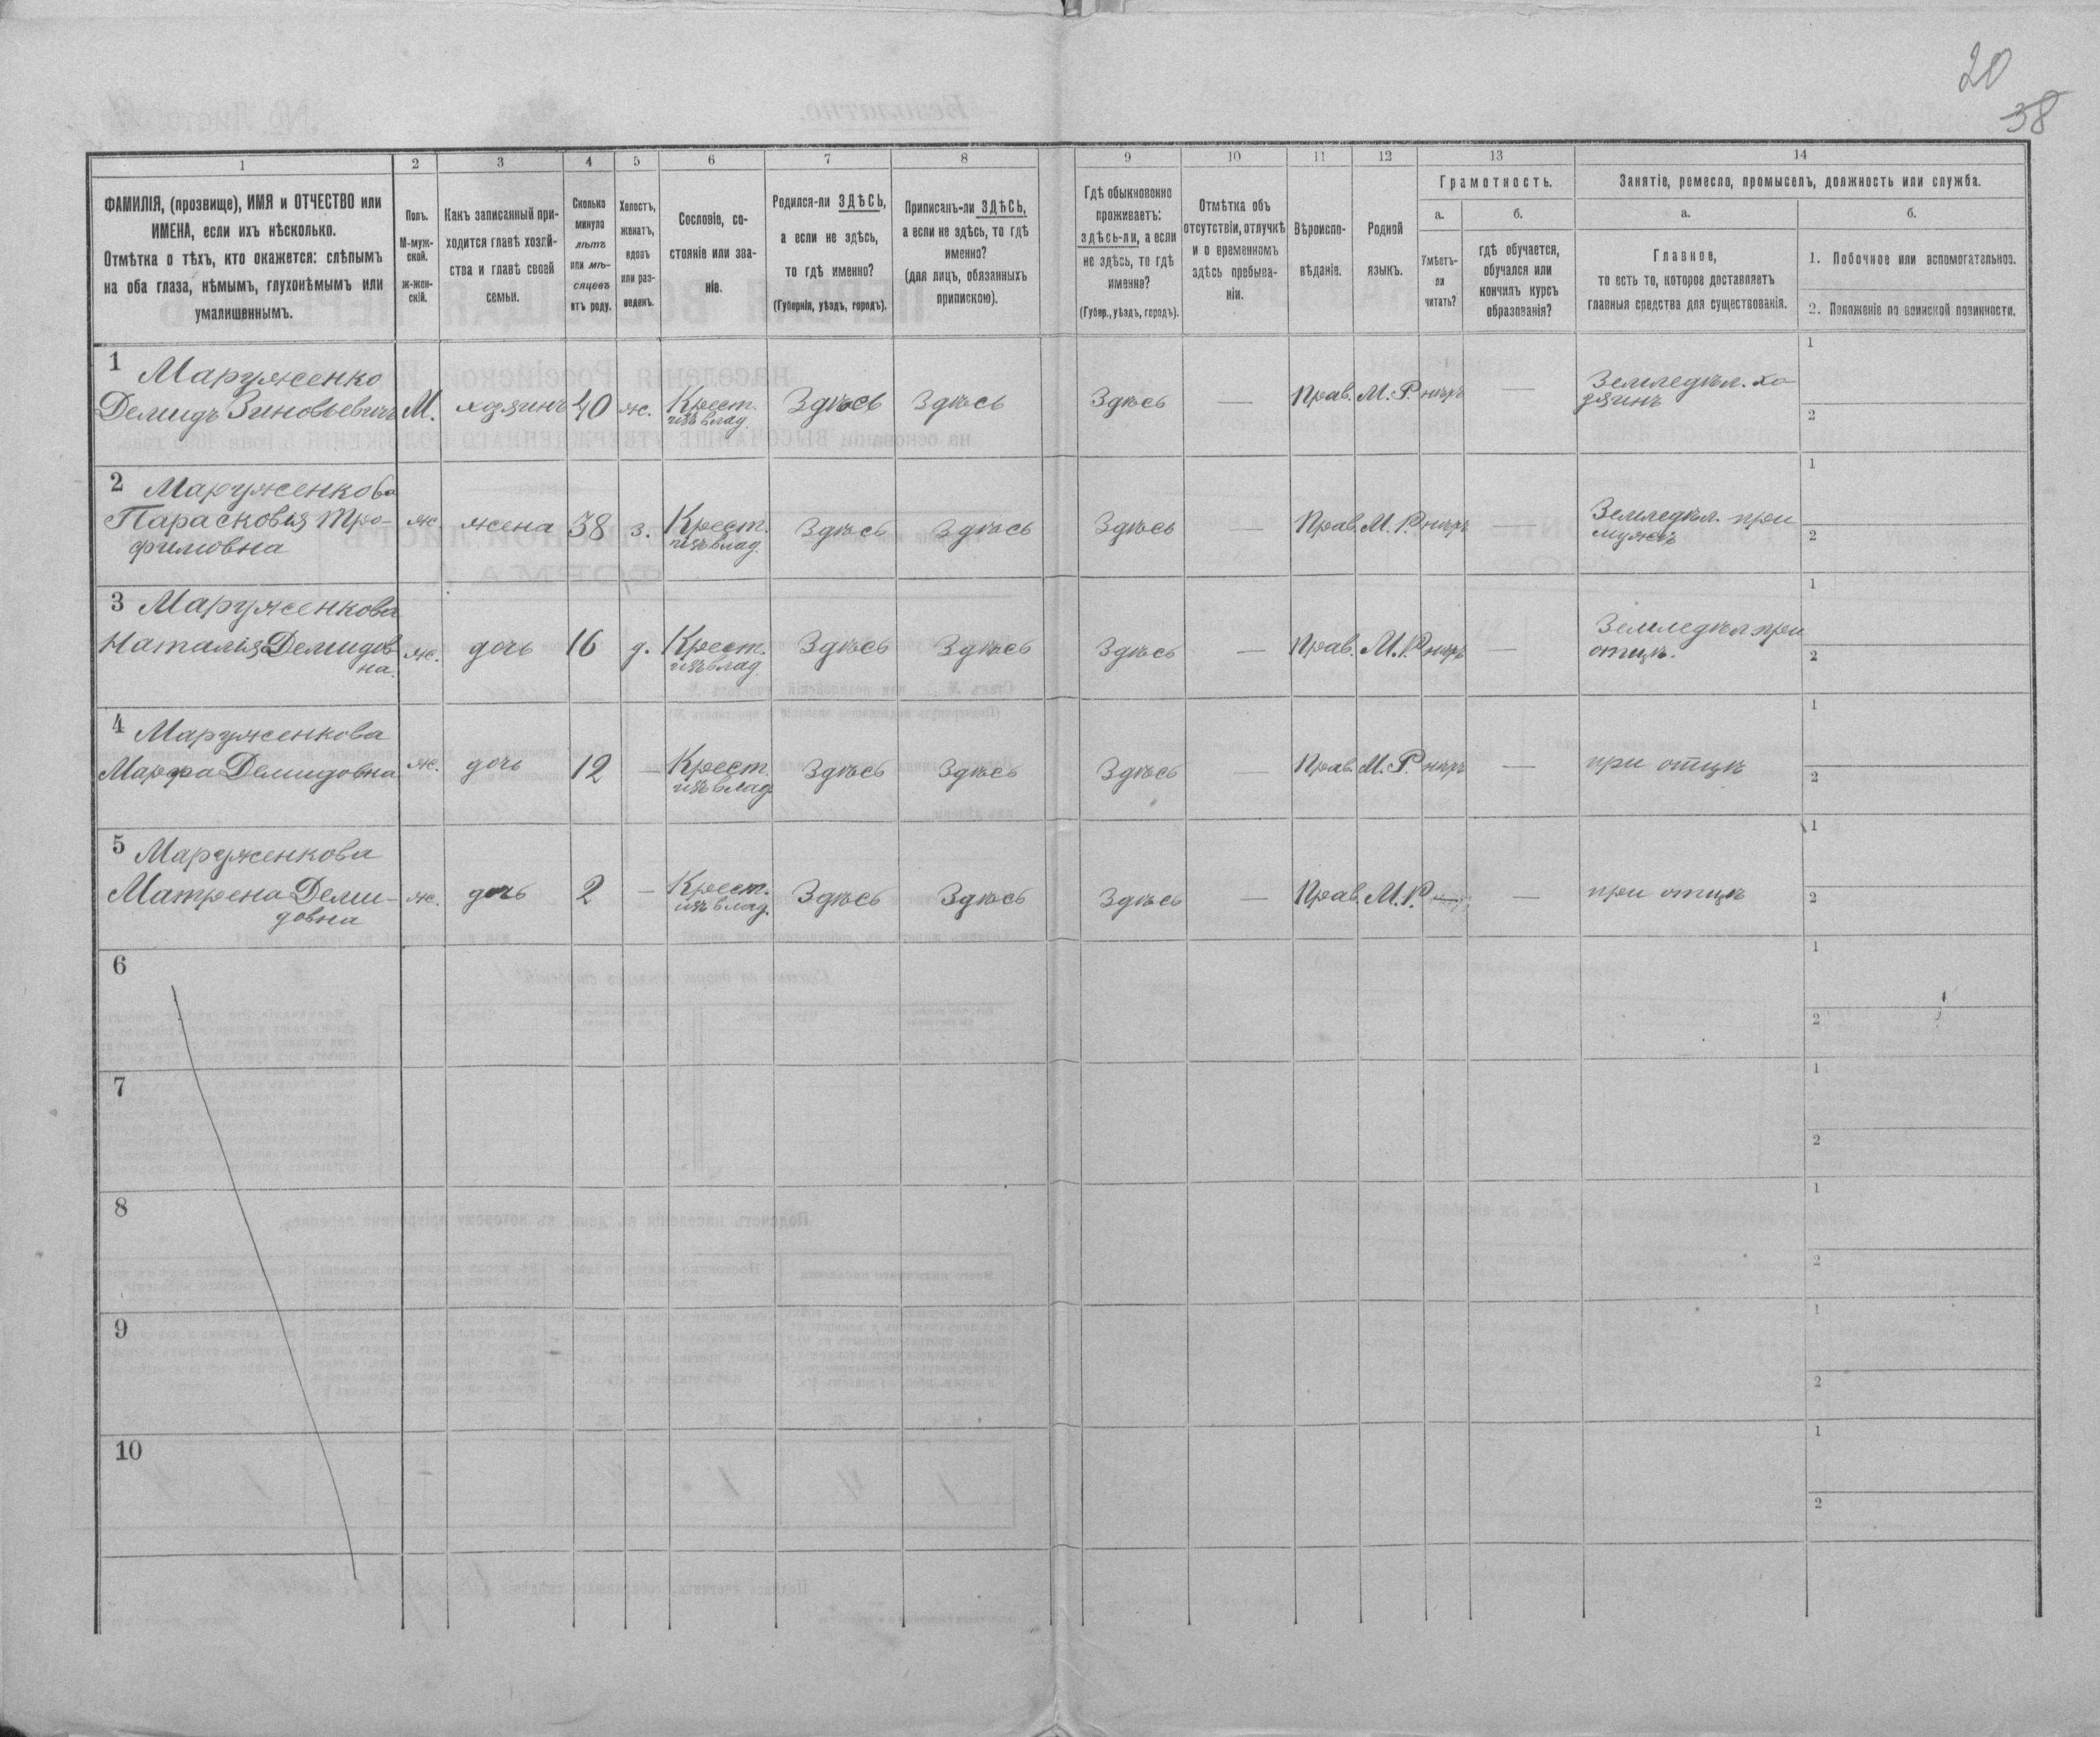 20
38
1
2
3
4
5
6
7
8
9
10
11
12
13
14
ФАМИЛІЯ, (прозвище), ИМЯ и ОТЧЕСТВО или
ИМЕНА, если ихъ нѣсколько.
Отмѣтка о тѣхъ, кто окажется: слѣпымъ
на оба глаза, нѣмымъ, глухонѣмымъ или
умалишеннымъ.
Полъ.
М-муж-
ской.
ж-жен-
скій.
Какъ записанный при-
ходится главѣ хозяй-
ства и главѣ своей
семьи.
Сколько
минуло
лѣтъ
или мѣ-
сяцевъ
отъ роду.
Холостъ,
женатъ,
вдовъ
или раз-
веденъ.
Сословіе, со-
стояніе или зва-
ніе.
Родился-ли ЗДѢСЬ,
а если не здѣсь,
то гдѣ именно?
(Губернія, уѣздъ, городъ).
Приписанъ-ли ЗДѢСЬ,
а если не здѣсь, то гдѣ
именно?
(для лицъ, обязанныхъ
припискою).
Гдѣ обыкновенно
проживаетъ:
здѣсь-ли, а если
не здѣсь, то гдѣ
именно?
(Губер., уѣздъ, городъ).
Отмѣтка объ
отсутствіи, отлучкѣ
и о временномъ
здѣсь пребыва-
ніи.
Вѣроиспо-
вѣданіе.
Родной
языкъ.
Грамотность.
а.
Умѣетъ-
ли
читать?
б.
гдѣ обучается,
обучался или
кончилъ курсъ
образованія?
Занятіе, ремесло, промыселъ, должность или служба.
а.
Главное,
то есть то, которое доставляетъ
главныя средства для существованія.
б.
1. Побочное или вспомогательное.
2. Положеніе по воинской повинности.
1 Маруженко
Демидъ Зиновьевичъ М. хозяинъ 40 ж. Крест. Здѣсь Здѣсь Здѣсь — Прав. М. Р. нѣтъ — Земледѣл. хо-
изъ влад. зяинъ
1
2
2 Маруженкова
Парасковія Тро- ж. жена 38 з. Крест. Здѣсь Здѣсь Здѣсь — Прав. М. Р. нѣтъ — Земледѣл. при
фимовна изъ влад. мужѣ
1
2
3 Маруженкова
Наталія Демидов ж. дочь 16 д. Крест. Здѣсь Здѣсь Здѣсь — Прав. М. Р. нѣтъ — Земледѣл при
на. изъ влад. отцѣ.
1
2
4 Маруженкова
Марфа Демидовна ж. дочь 12 — Крест. Здѣсь Здѣсь Здѣсь — Прав. М. Р. нѣтъ — при отцѣ
изъ влад.
1
2
5 Маруженкова
Матрена Деми- ж. дочь 2 — Крест. Здѣсь Здѣсь Здѣсь — Прав. М. Р. — — при отцѣ
довна изъ влад.
1
2
6
1
2
7
1
2
8
1
2
9
1
2
10
1
2